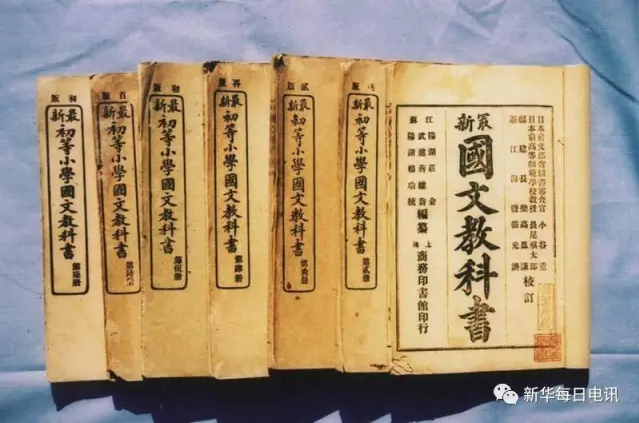 最新
國文教科書
日本前文部省圖書審查官 小谷重
日本前高等師範學校教授 長尾槙太郎
福建長樂高鳳謙
浙江海鹽張元濟
校訂
武進蔣維喬
陽湖楊瑜統
編纂
上海
商務印書館印行
最新初等小學國文教科書
第貳册
貳版
最新初等小學國文教科書
第叁册
再版
最新初等小學國文教科書
第肆册
初版
最新初等小學國文教科書
第伍册
最新初等小學國文教科書
初版
最新初等小學國文教科書
第柒册
新华每日电讯